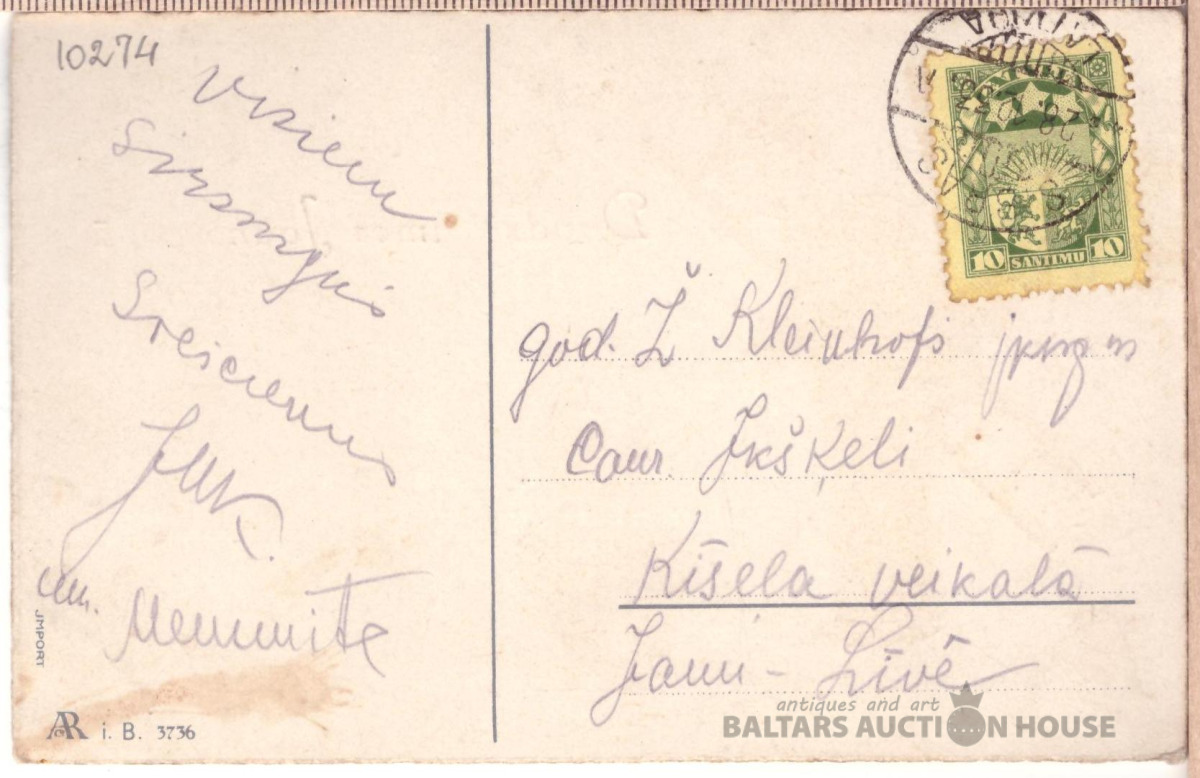 10274
Visiem
Sirsnigus
Sveicienus
un. Memmite
JMPORT
i. B. 3736
LATVIJA
10 SANTIMU 10
god. Ž Kleinhofs
Caur. Jkšķeli
Kīšela veikalā
Jaun-
antiques and art
BALTARS AUCTION HOUSE